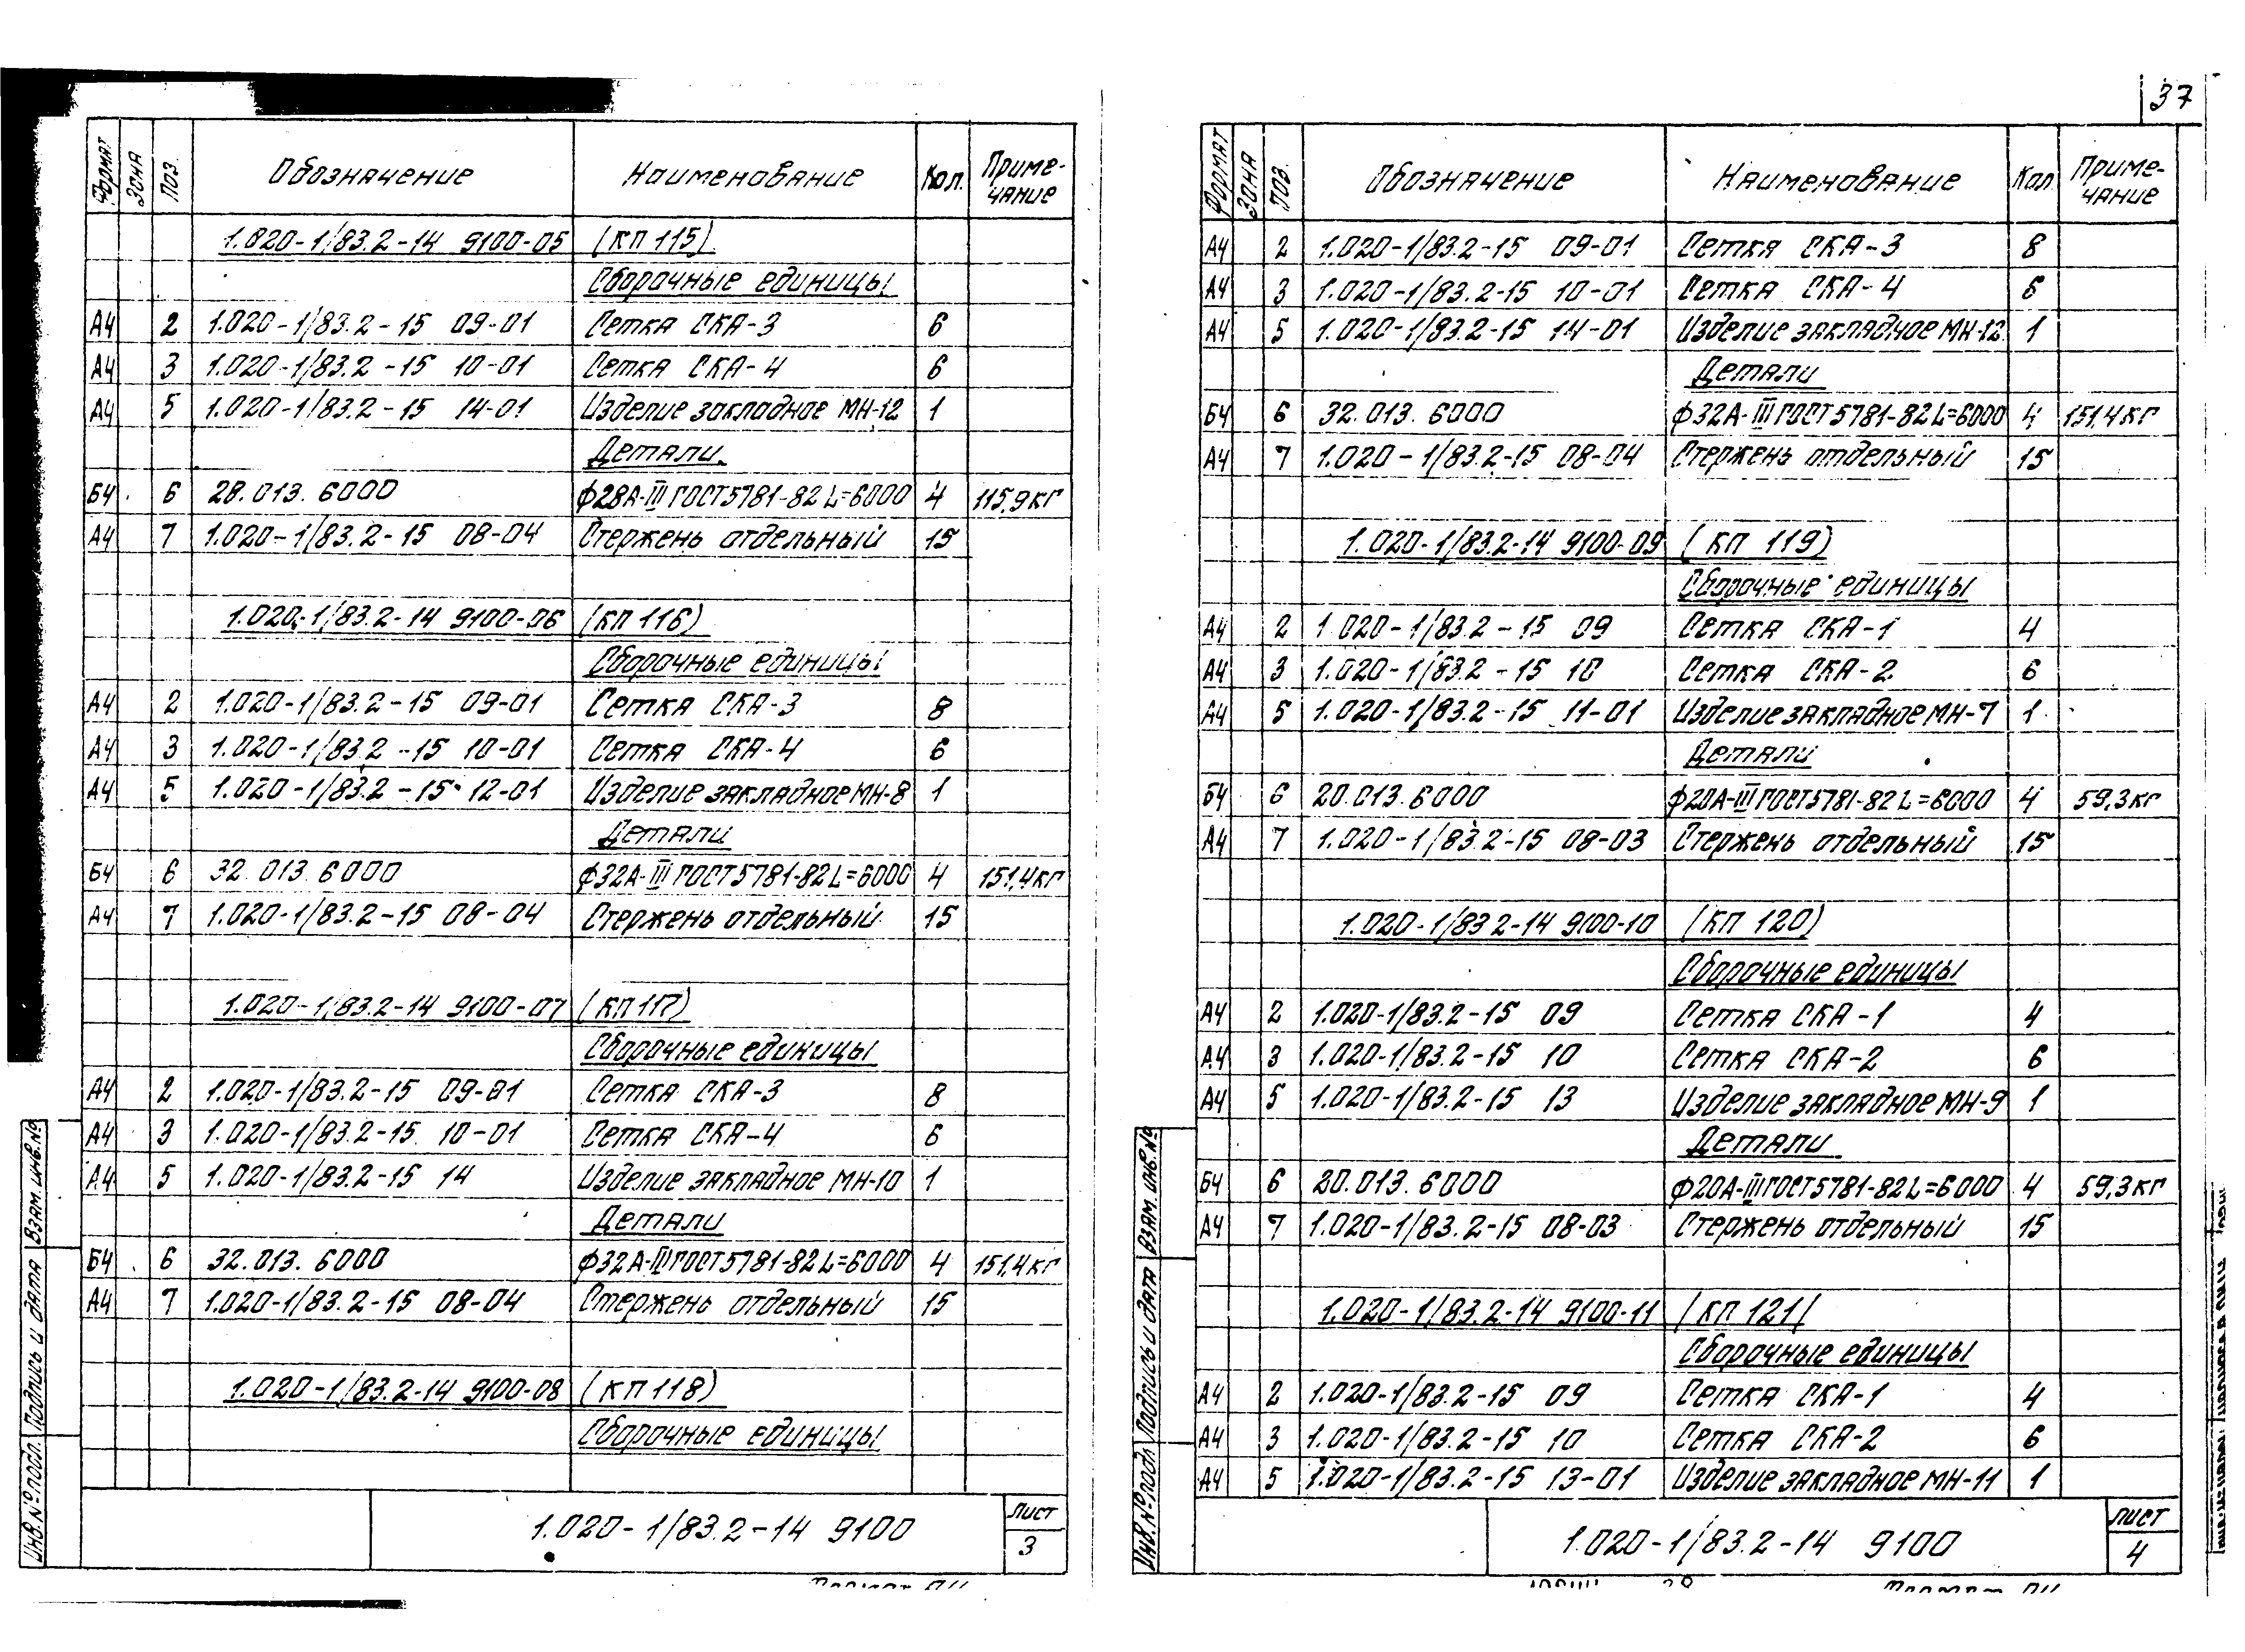 37
Формат Зона Поз. Обозначение Наименование Кол. Приме-
чание
1.020-1/83.2-14 9100-05 (КП 115)
Сборочные единицы
А4 2 1.020-1/83.2-15 09-01 Сетка СКА-3 6
А4 3 1.020-1/83.2-15 10-01 Сетка СКА-4 6
А4 5 1.020-1/83.2-15 14-01 Изделие закладное МН-12 1
Детали
Б4 6 28.013.6000 ф28А-III ГОСТ 5781-82 L=6000 4 115,9кг
А4 7 1.020-1/83.2-15 08-04 Стержень отдельный 15
1.020-1/83.2-14 9100-06 (КП 116)
Сборочные единицы
А4 2 1.020-1/83.2-15 09-01 Сетка СКА-3 8
А4 3 1.020-1/83.2-15 10-01 Сетка СКА-4 6
А4 5 1.020-1/83.2-15 12-01 Изделие закладное МН-8 1
Детали
Б4 6 32.013.6000 ф32А-III ГОСТ 5781-82 L=6000 4 151,4кг
А4 7 1.020-1/83.2-15 08-04 Стержень отдельный 15
1.020-1/83.2-14 9100-07 (КП 117)
Сборочные единицы
А4 2 1.020-1/83.2-15 09-01 Сетка СКА-3 8
А4 3 1.020-1/83.2-15 10-01 Сетка СКА-4 6
А4 5 1.020-1/83.2-15 14 Изделие закладное МН-10 1
Детали
Б4 6 32.013.6000 ф32А-III ГОСТ 5781-82 L=6000 4 151,4кг
А4 7 1.020-1/83.2-15 08-04 Стержень отдельный 15
1.020-1/83.2-14 9100-08 (КП 118)
Сборочные единицы
Инв. № подл. Подпись и дата Взам. инв. №
1.020-1/83.2-14 9100
Лист
3
Формат Зона Поз. Обозначение Наименование Кол Приме-
чание
А4 2 1.020-1/83.2-15 09-01 Сетка СКА-3 8
А4 3 1.020-1/83.2-15 10-01 Сетка СКА-4 6
А4 5 1.020-1/83.2-15 14-01 Изделие закладное МН-12 1
Детали
Б4 6 32.013.6000 ф32А-III ГОСТ 5781-82 L=6000 4 151,4кг
А4 7 1.020-1/83.2-15 08-04 Стержень отдельный 15
1.020-1/83.2-14 9100-09 (КП 119)
Сборочные единицы
А4 2 1.020-1/83.2-15 09 Сетка СКА-1 4
А4 3 1.020-1/83.2-15 10 Сетка СКА-2 6
А4 5 1.020-1/83.2-15 11-01 Изделие закладное МН-7 1
Детали
Б4 6 20.013.6000 ф20А-III ГОСТ 5781-82 L=6000 4 59,3кг
А4 7 1.020-1/83.2-15 08-03 Стержень отдельный 15
1.020-1/83.2-14 9100-10 (КП 120)
Сборочные единицы
А4 2 1.020-1/83.2-15 09 Сетка СКА-1 4
А4 3 1.020-1/83.2-15 10 Сетка СКА-2 6
А4 5 1.020-1/83.2-15 13 Изделие закладное МН-9 1
Детали
Б4 6 20.013.6000 ф20А-III ГОСТ 5781-82 L=6000 4 59,3кг
А4 7 1.020-1/83.2-15 08-03 Стержень отдельный 15
1.020-1/83.2-14 9100-11 (КП 121)
Сборочные единицы
А4 2 1.020-1/83.2-15 09 Сетка СКА-1 4
А4 3 1.020-1/83.2-15 10 Сетка СКА-2 6
А4 5 1.020-1/83.2-15 13-01 Изделие закладное МН-11 1
Инв. № подл Подпись и дата Взам. инв. №
1.020-1/83.2-14 9100
Лист
4